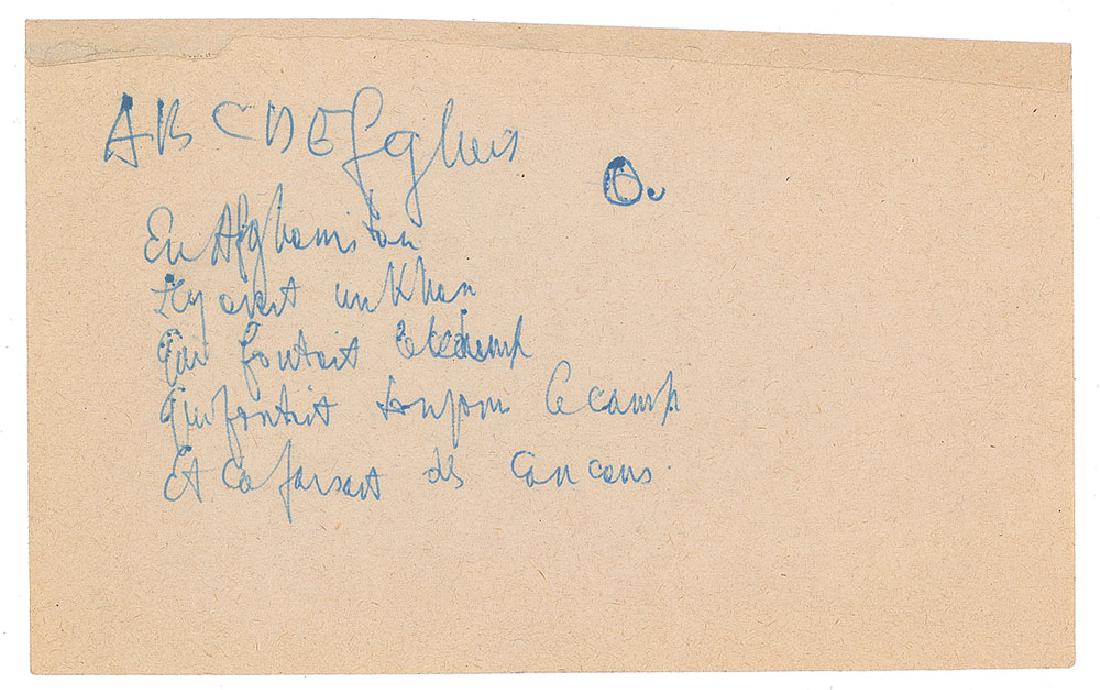 ABCDEfghis
O.
En Afghanistan
Il y avait un Khan
Qui foutait le camp
Qui foutait toujours le camp
Et ca faisait des cancans.